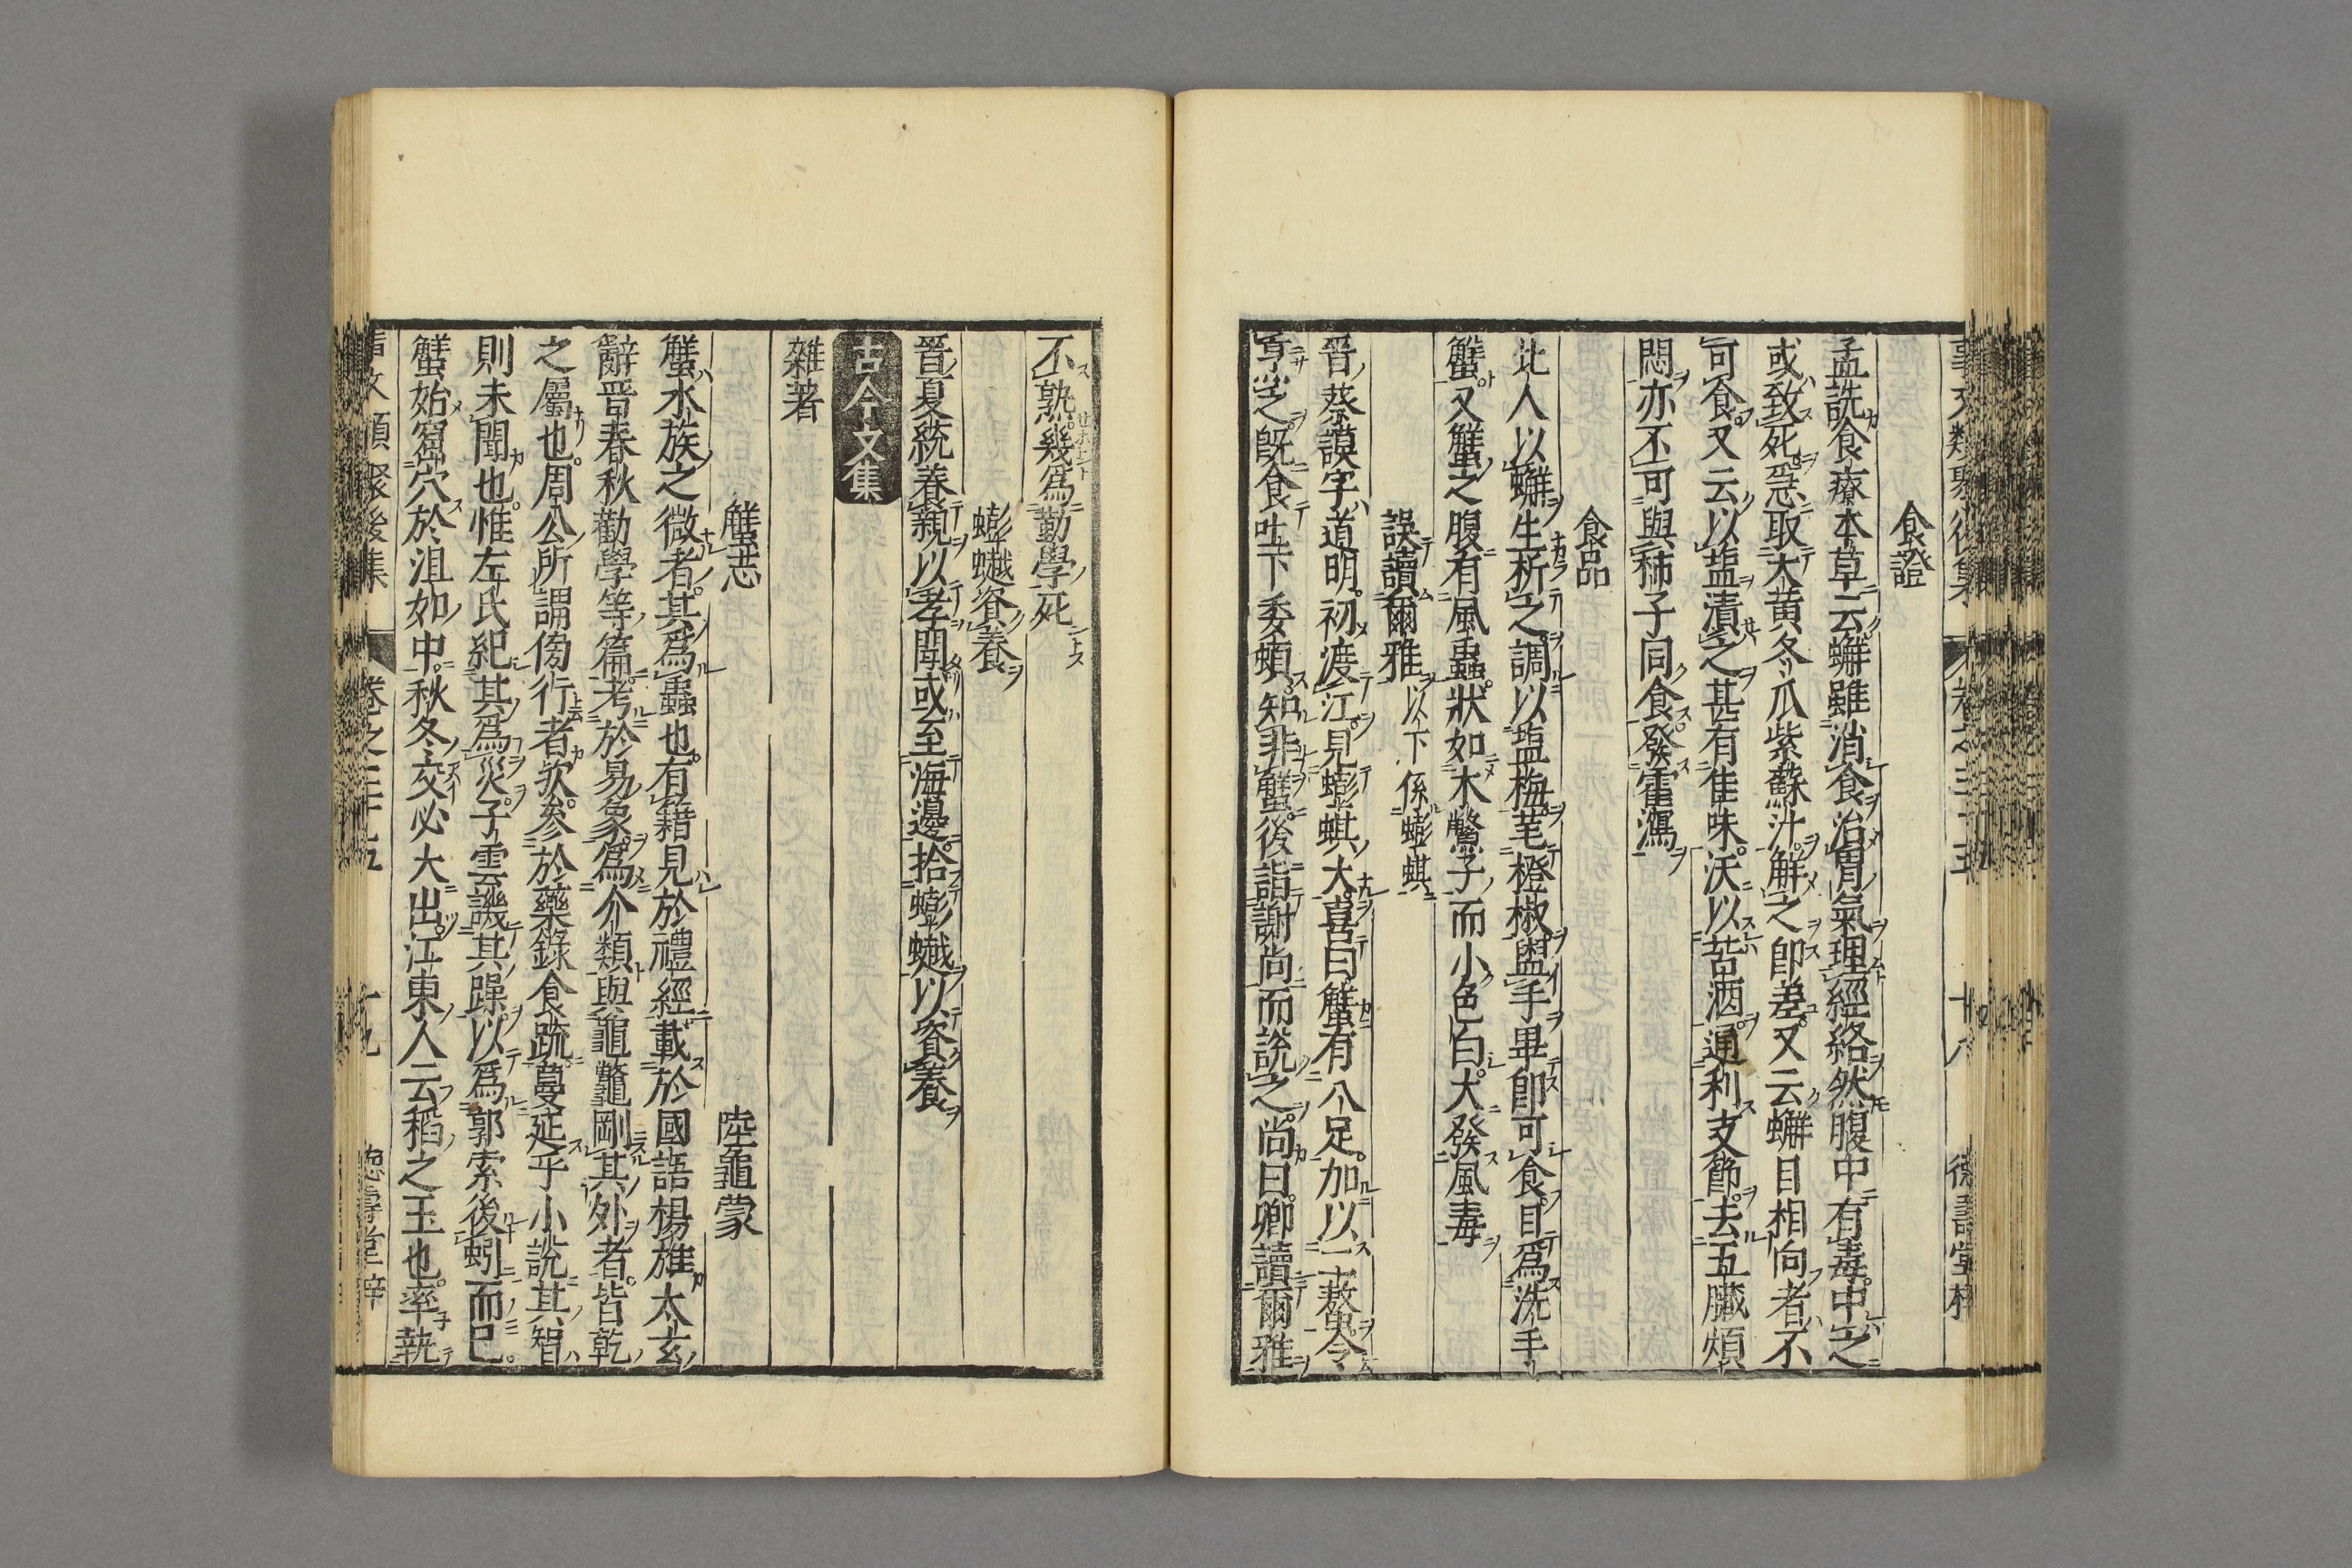 事文類聚後集 卷之三十五 十八 德壽堂梓
食證
孟詵食療本草云蠏雖消食治胃氣理經絡然腹中有毒中之
或致死急取大黄冬瓜紫蘇汁解之卽差又云蠏目相向者不
可食又云以塩漬之甚有佳味沃以苦酒通利支節去五臟煩
悶亦不可與柿子同食發霍瀉
食品
北人以蠏生析之調以塩梅芼橙椒盥手畢卽可食目爲洗手
蟹又蟹之腹有風蟲狀如木鱉子而小色白大發風毒
誤讀爾雅 以下係蟛蜞
晉蔡謨字道明初渡江見蟛蜞大喜曰蟹有八足加以二螯令
烹之既食吐下委頓知非蟹後詣謝尚而說之尚曰卿讀爾雅
不熟幾爲勤學死
蟛蠘資養
晉夏統養親以孝聞或至海邊拾蟛蠘以資養
古今文集
雜著
蟹志 陸龜蒙
蟹水族之微者其爲蟲也有籍見於禮經載於國語楊雄太玄
辭晉春秋勸學等篇考於易象爲介類與龜鼈剛其外者皆乾
之屬也周公所謂傍行者歟參於藥錄食䟽蔓延乎小說其智
則未聞也惟左氏紀其爲災子雲譏其躁以爲郭索後蚓而已
蟹始窟穴於沮如中秋冬交必大出江東人云稻之玉也率執
事文類聚後集 卷之三十五 十九 德壽堂梓